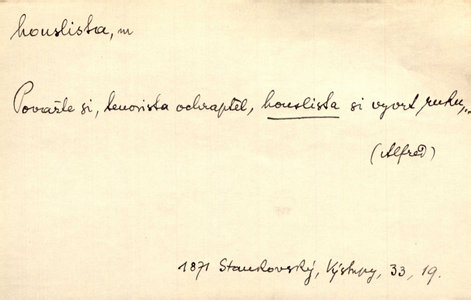 houslista, m
Považte si, tenorista ochraptěl, houslista si vyvrt ruku,..
(Alfred)
1871 Stankovský, Výstupy, 33, 19.